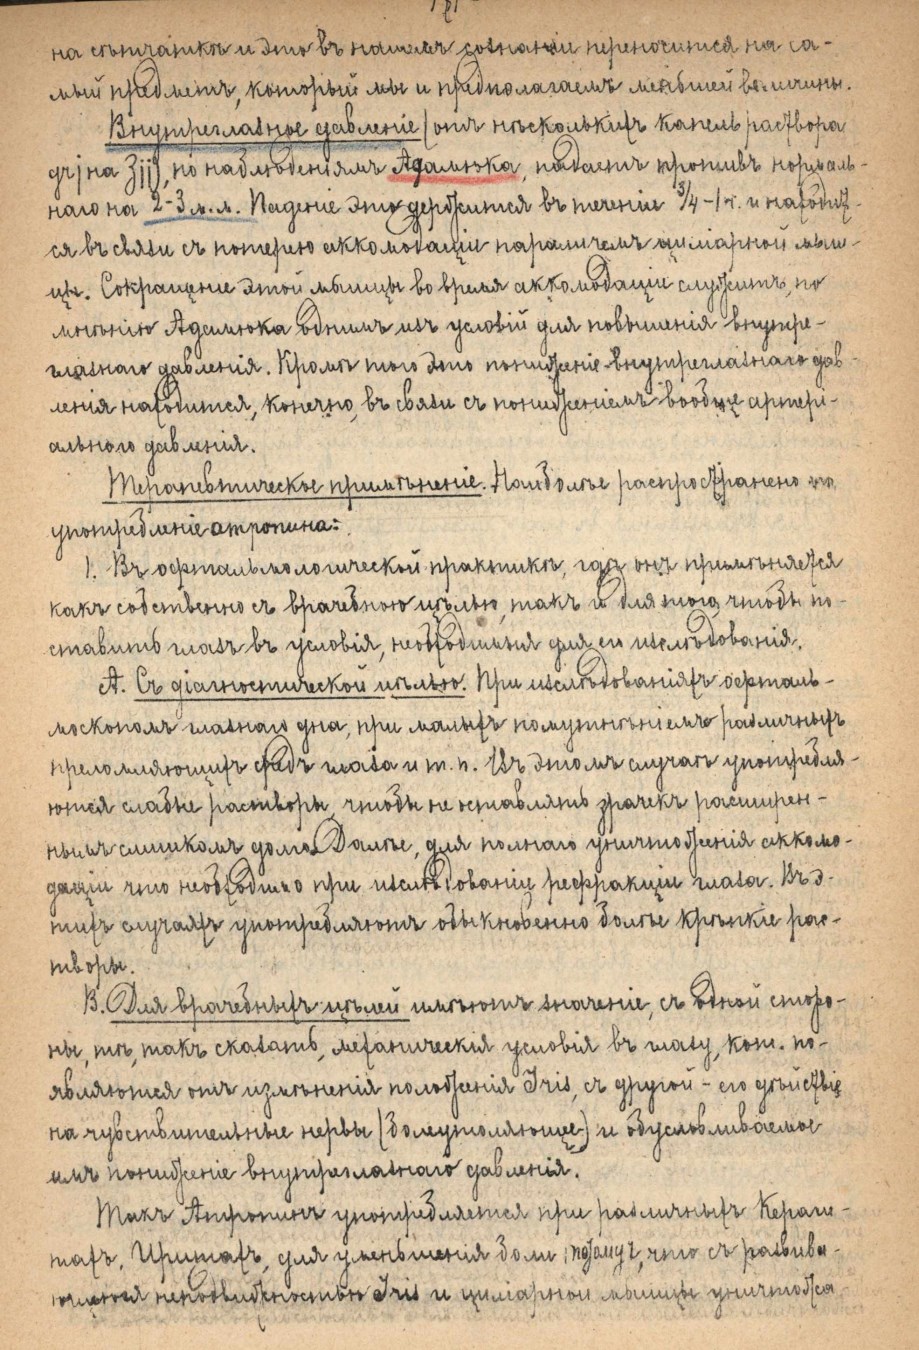 на сѣтчаткѣ и это въ нашемъ сознаніи переносится на са-
мый предметъ, который мы и предполагаемъ меньшей величины.
Внутреглазное давленіе (отъ нѣсколькихъ капель раствора
грj на Зjj), по наблюденіямъ Адамюка, падаетъ противъ нормаль-
наго на 2-3 м.м. Паденіе это держится въ теченіи 3/4-1 ч. и находит-
ся въ связи съ потерею аккомодаціи параличемъ циліарной мыш-
цы. Сокращеніе этой мышцы во время аккомодаціи служитъ, по
мнѣнію Адамюка однимъ изъ условій для повышенія внутре-
глазнаго давленія. Кромѣ того это пониженіе внутреглазнаго дав-
ленія находится, конечно, въ связи съ пониженіемъ вообще артери-
альнаго давленія.
Терапевтическое примѣненіе. Наиболѣе распространено
употребленіе атропина:
1. Въ офтальмологической практикѣ, гдѣ онъ примѣняется
какъ собственно съ врачебною цѣлью, такъ и для того, чтобы по-
ставить глазъ въ условія, необходимыя для его изслѣдованія.
А. Съ діагностической цѣлью. При изслѣдованіяхъ офталь-
москопомъ глазнаго дна, при малыхъ помутнѣніемъ различныхъ
преломляющихъ средъ глаза и т. п. Въ этомъ случаѣ употребля-
ются слабые растворы, чтобы не оставлять зрачекъ расширен-
нымъ слишкомъ долго. Далѣе, для полнаго уничтоженія аккомо-
даціи что необходимо при изслѣдованіи рефракціи глаза. Въ э-
тихъ случаяхъ употребляютъ обыкновенно болѣе крѣпкіе рас-
творы.
В. Для врачебныхъ цѣлей имѣютъ значеніе, съ одной сторо-
ны, тѣ, такъ сказать, механическія условія въ глазу, кот. по-
являются отъ измѣненія положенія Iris, съ другой - его дѣйствіе
на чувствительные нервы (болеутоляющее) и обусловливаемое
имъ пониженіе внутреглазнаго давленія.
Такъ Атропинъ употребляется при различныхъ Керати-
тахъ, Иритахъ, для уменьшенія боли, потому, что съ развива-
ющеюся неподвижностью Iris и циліарной мышцы уничтожа-